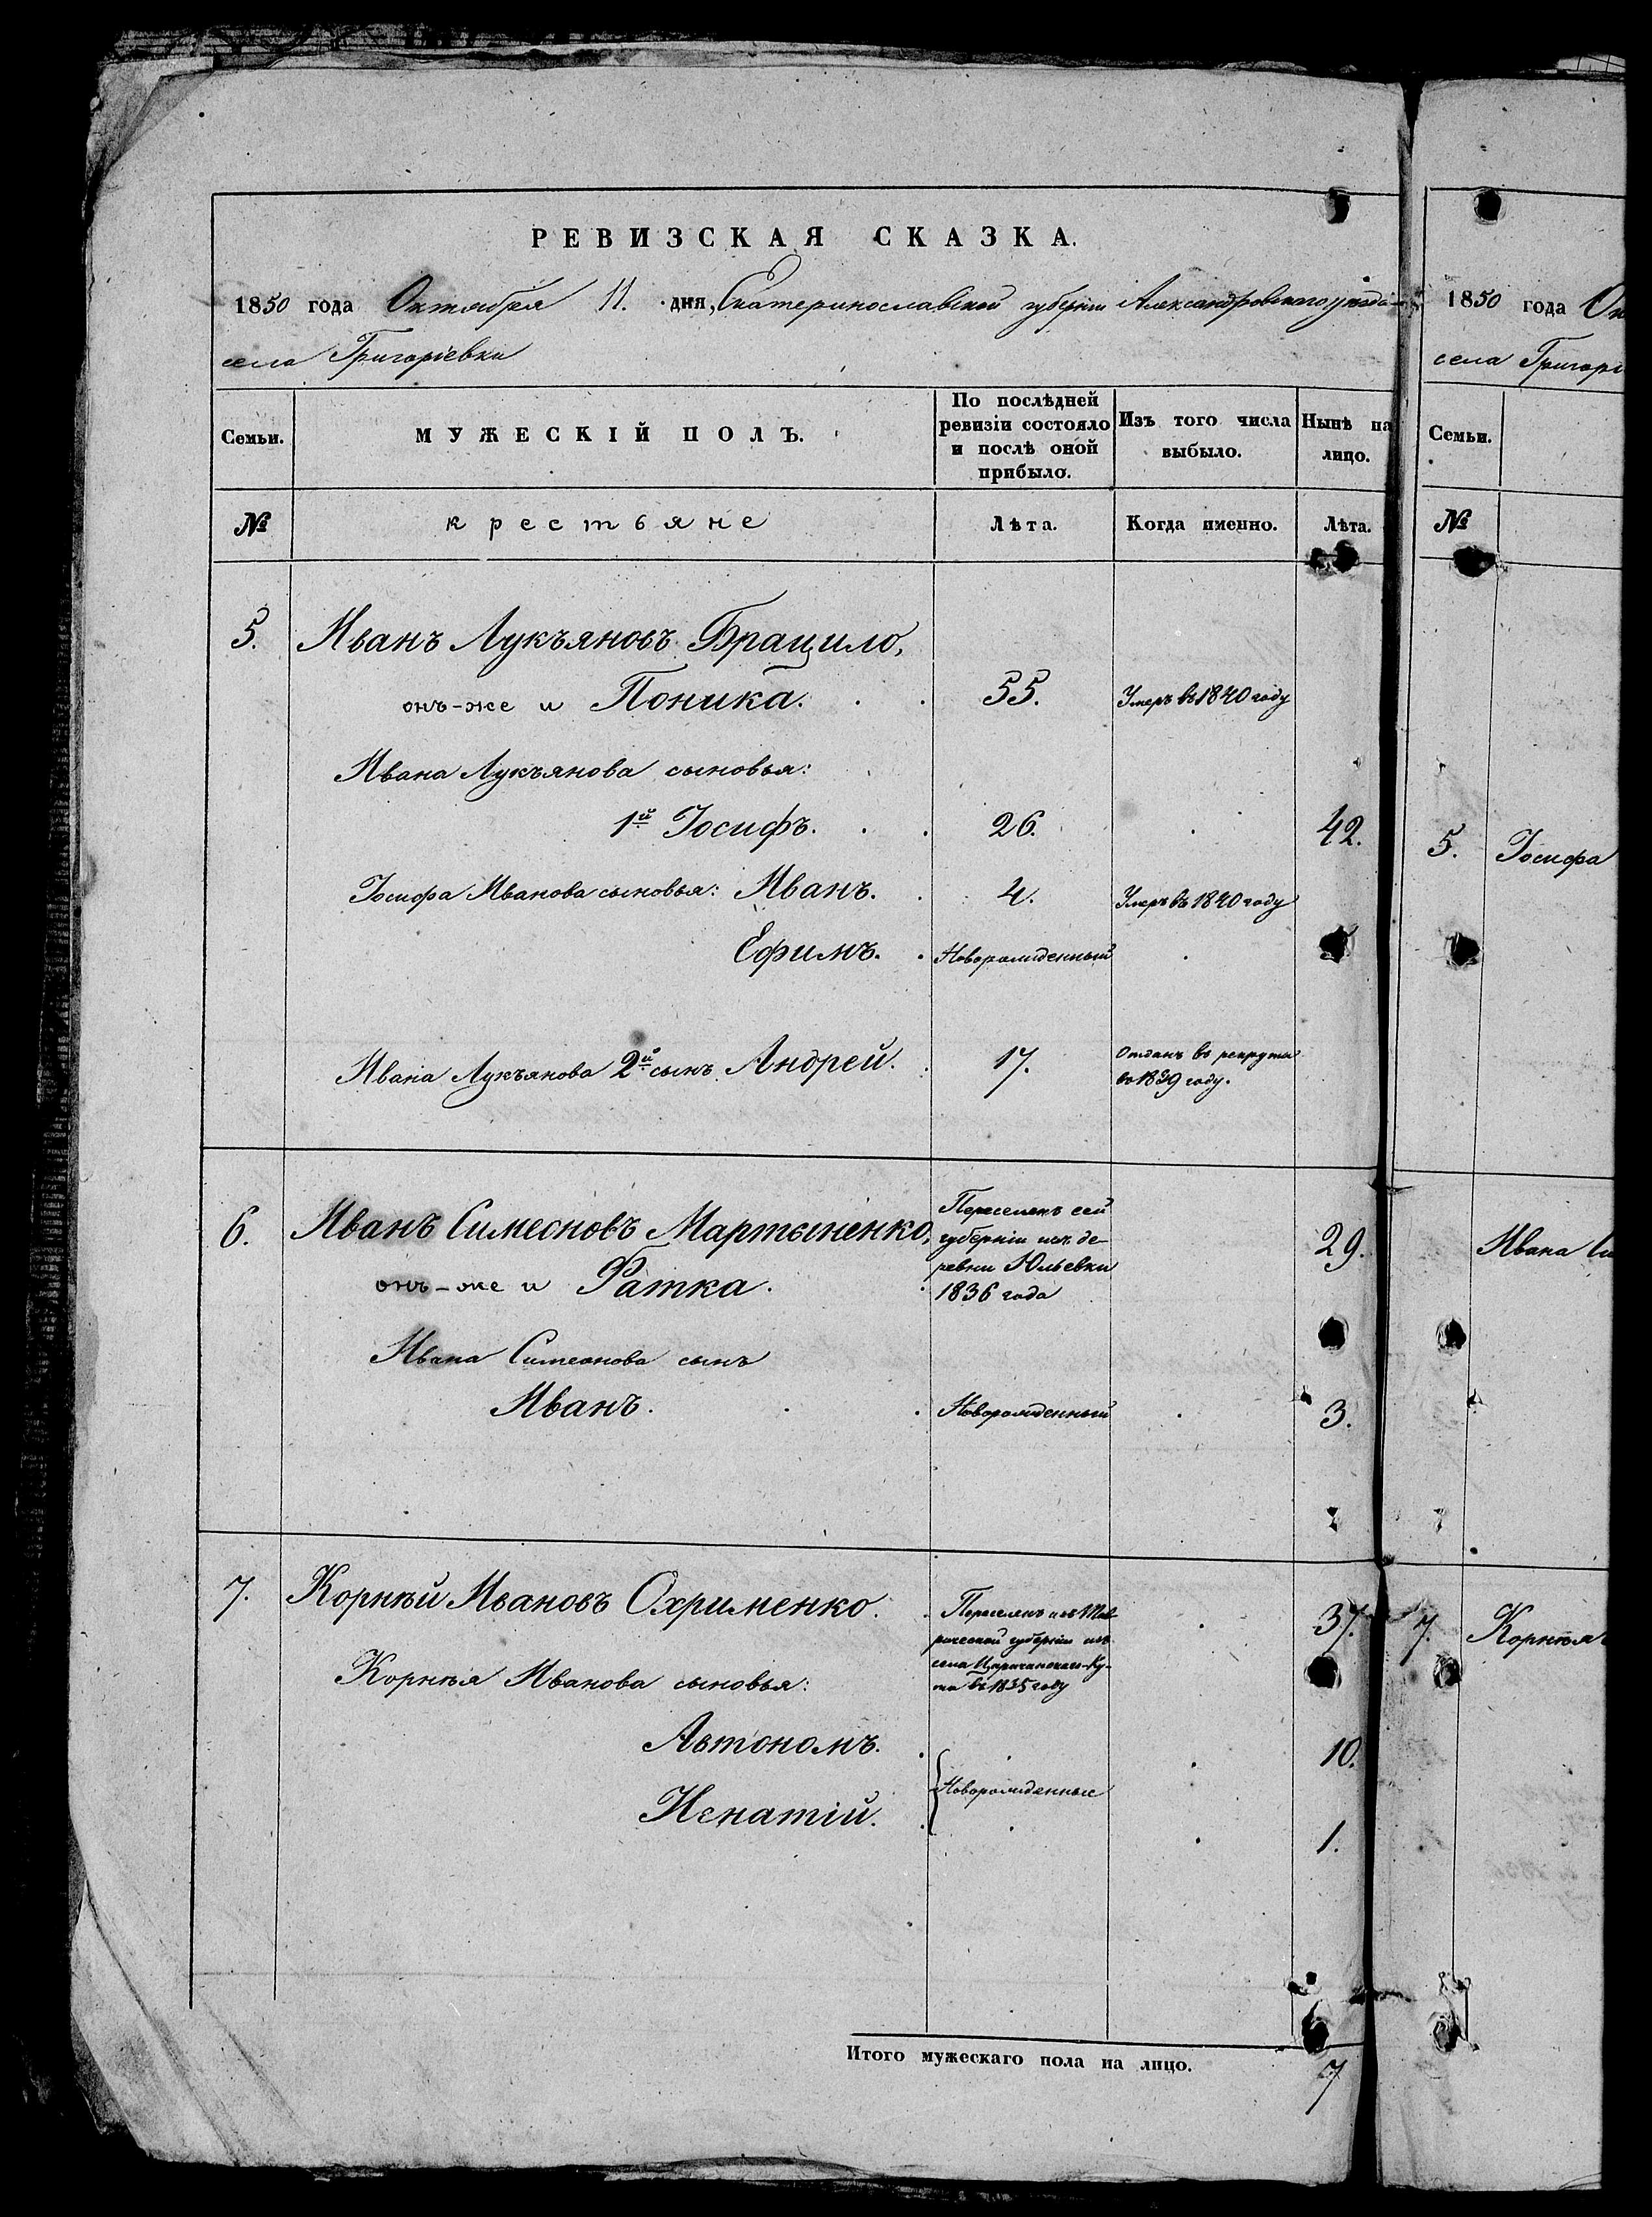 РЕВИЗСКАЯ СКАЗКА.
1850 года Октября 11. дня, Екатеринославской губерніи Александровскаго уѣзда
села Григоріевки
Семьи.
МУЖЕСКІЙ ПОЛЪ.
По послѣдней
ревизіи состояло
и послѣ оной
прибыло.
Изъ того числа
выбыло.
Нынѣ на
лицо.
№
крестьяне
Лѣта.
Когда именно.
Лѣта.
5. Иванъ Лукъяновъ Брацило,
онъ-же и Поника. 55. Умеръ въ 1840 году
Ивана Лукъянова сыновья:
1й Іосифъ. 26. 42.
Іосифа Иванова сыновья: Иванъ. 4. Умеръ въ 1840 году
Ефимъ. Новорожденный
Ивана Лукъянова 2й сынъ Андрей. 17. Отданъ въ рекруты
въ 1839 году.
6. Иванъ Симеоновъ Мартыненко,
онъ-же и Ратка.
Переселенъ сей
губерніи изъ де-
ревни Юльевки
1836 года
29.
Ивана Симеонова сынъ
Иванъ. Новорожденный 3.
7. Корнѣй Ивановъ Охрименко.
Переселенъ изъ Тав-
рической губерніи изъ
села Царичанскаго-Ку-
та въ 1835 году
37.
Корнѣя Иванова сыновья:
Автономъ. 10.
Новорожденные
Игнатій. 1.
Итого мужескаго пола на лицо. 7
1850 года Ок
села Григорі
Семьи.
№
5. Іосифа
Ивана Си
7. Корнѣя